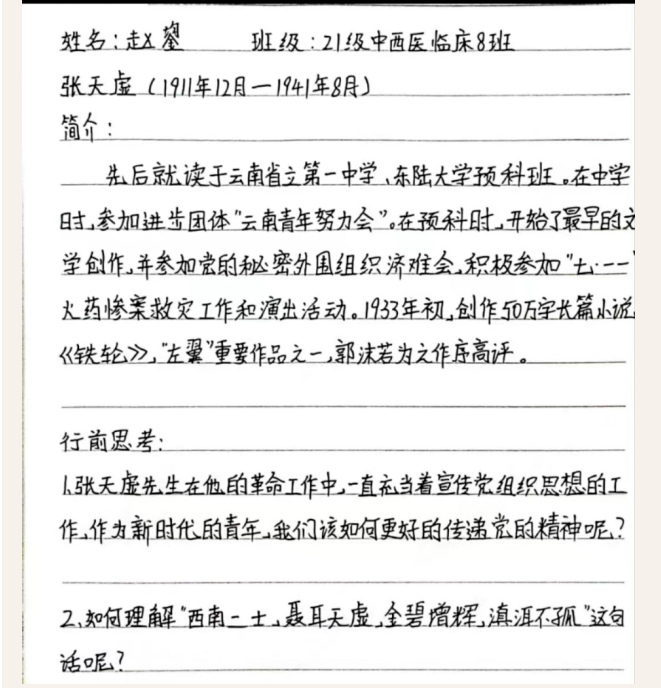 姓名：赵鋆 班级：21级中西医临床8班
张天虚（1911年12月—1941年8月）
简介：
先后就读于云南省立第一中学、东陆大学预科班。在中学
时，参加进步团体“云南青年努力会”。在预科时，开始了最早的文
学创作，并参加党的秘密外围组织济难会，积极参加“七·一一”
火药惨案救灾工作和演出活动。1933年初，创作50万字长篇小说
《铁轮》，“左翼”重要作品之一，郭沫若为之作序高评。
行前思考：
1.张天虚先生在他的革命工作中，一直充当着宣传党组织思想的工
作，作为新时代的青年，我们该如何更好的传递党的精神呢？
2.如何理解“西南二士，聂耳天虚，金碧增辉，滇洱不孤”这句
话呢？